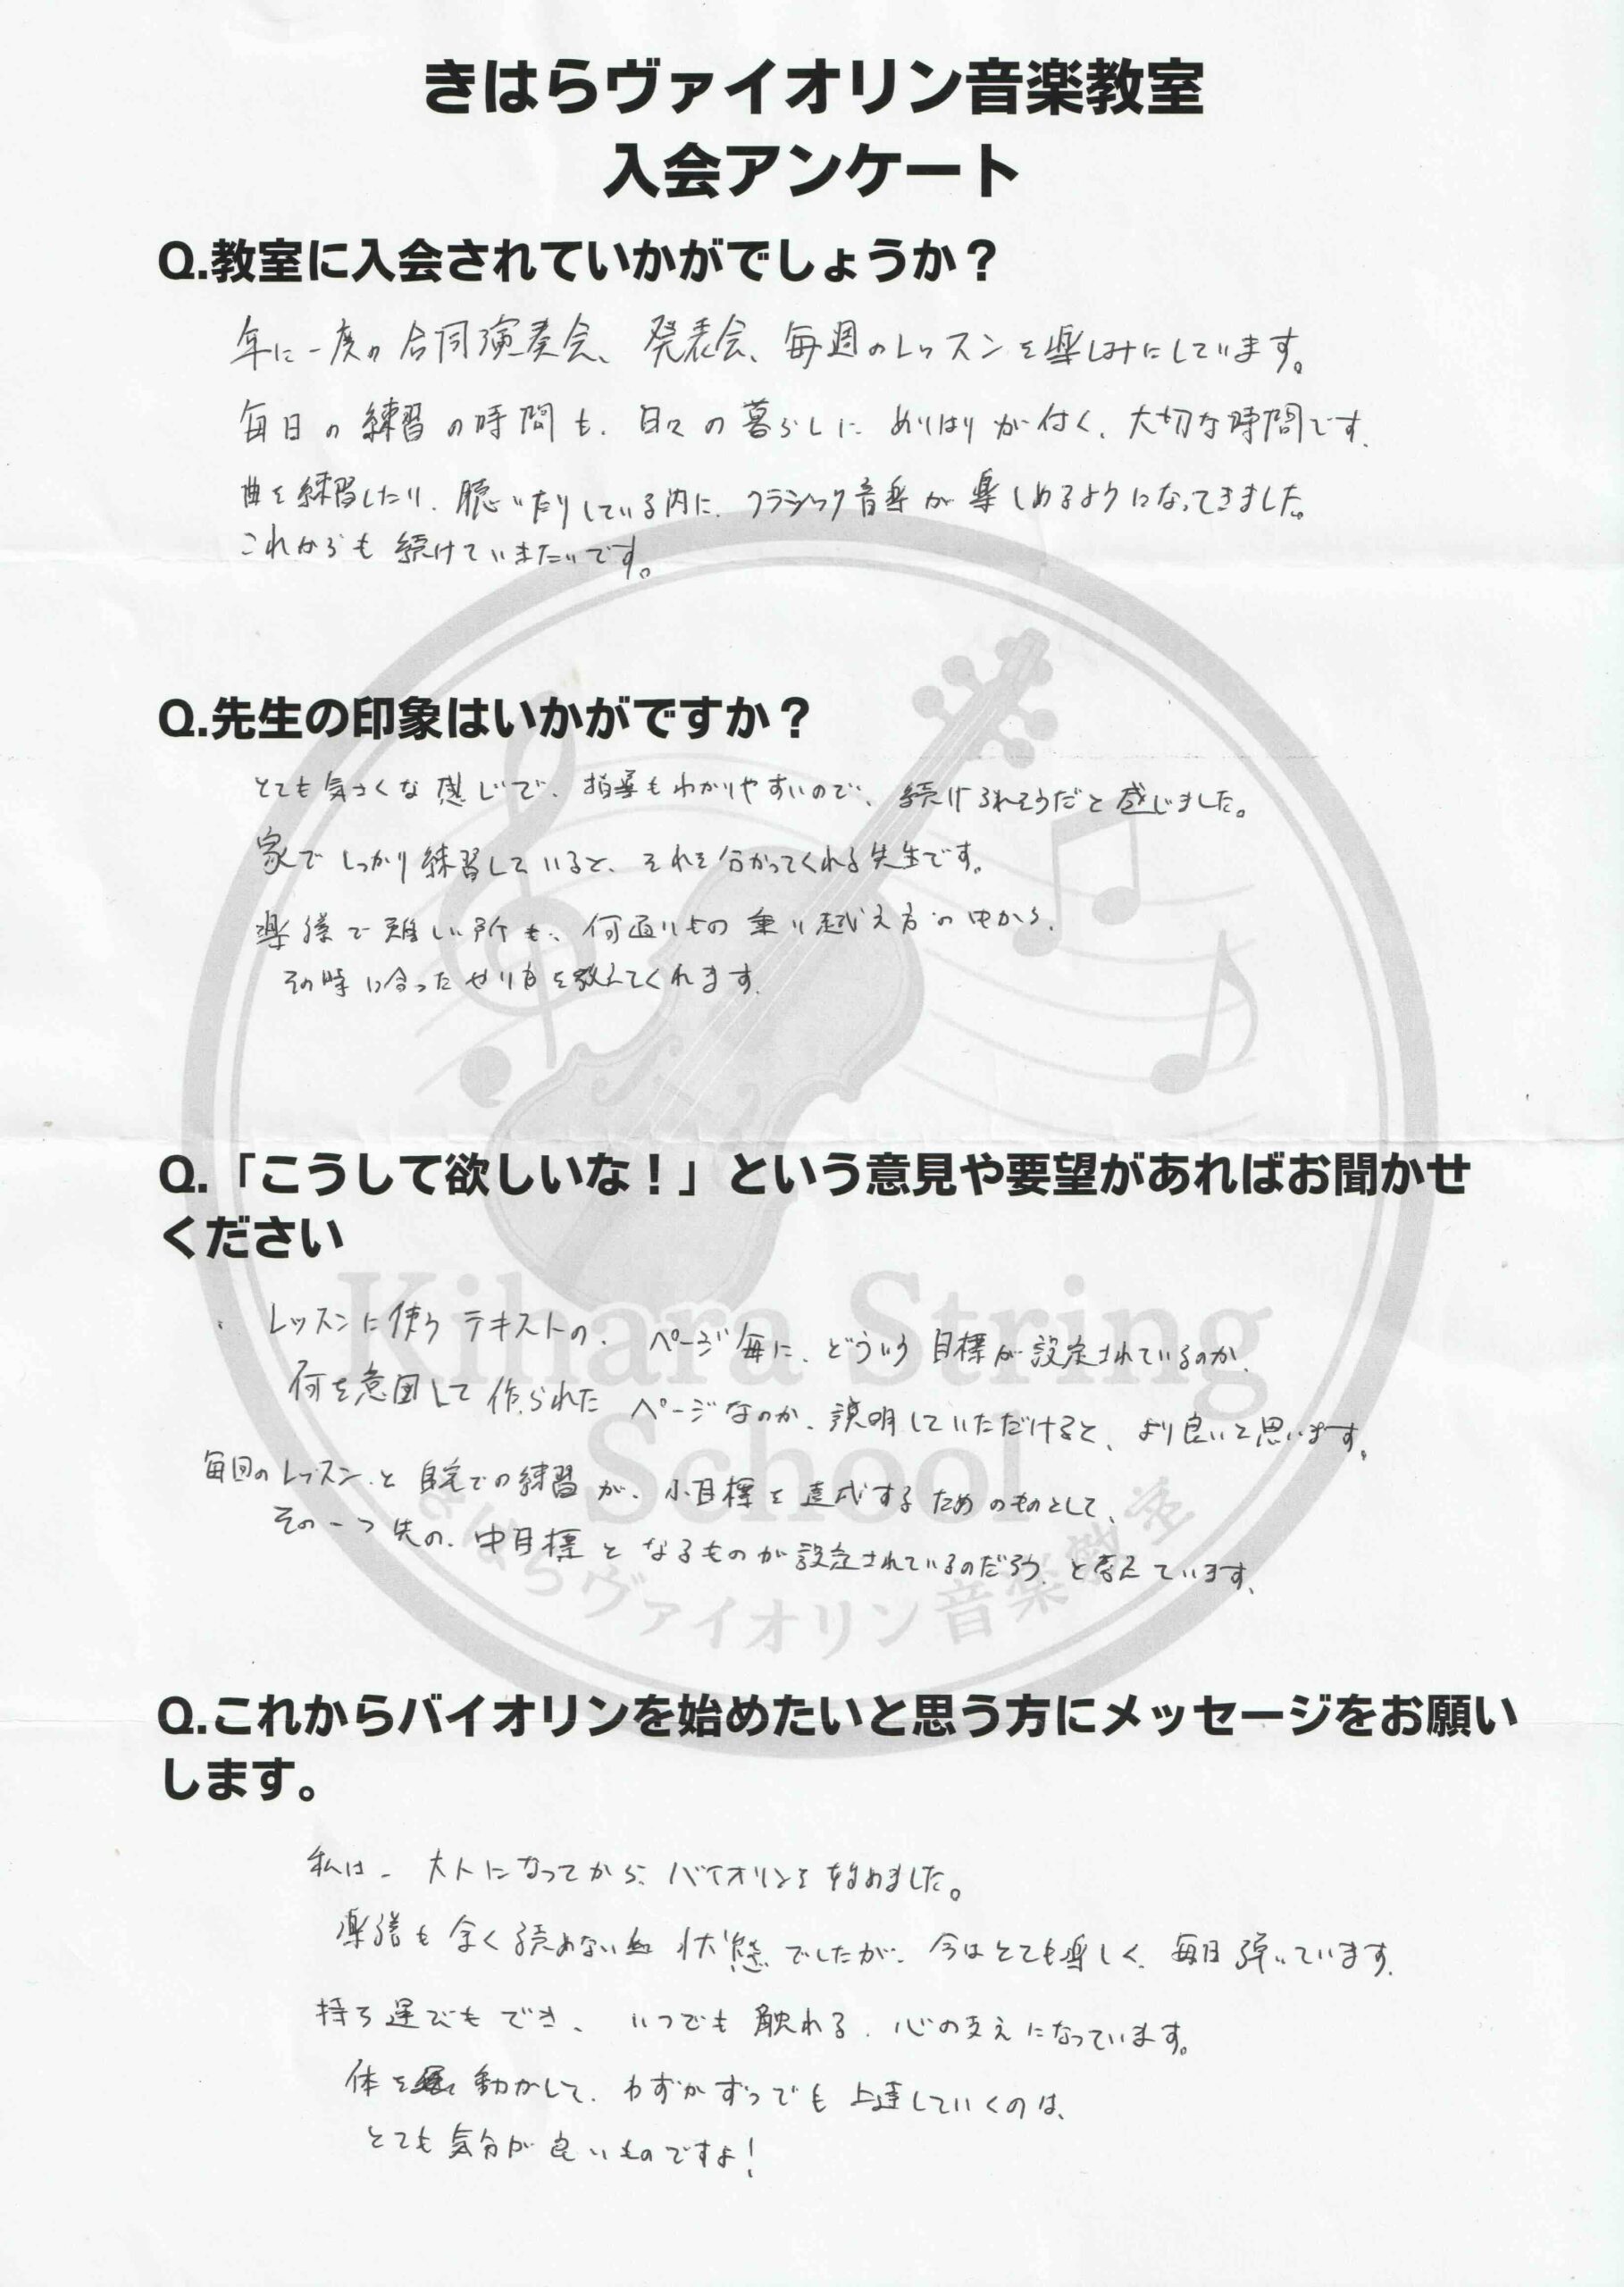 きはらヴァイオリン音楽教室
入会アンケート
Q.教室に入会されていかがでしょうか？
年に一度の合同演奏会、発表会、毎週のレッスンを楽しみにしています。
毎日の練習の時間も、日々の暮らしに めりはりが付く、大切な時間です。
曲を練習したり、聴いたりしている内に、クラシック音楽が楽しめるようになってきました。
これからも続けていきたいです。
Q.先生の印象はいかがですか？
とても気さくな感じで、指導もわかりやすいので、続けられそうだと感じました。
家でしっかり練習していると、それを分かってくれる先生です。
楽譜で難しい所も、何通りもの乗り越え方の中から、
その時に合ったやり方を教えてくれます。
Q.「こうして欲しいな！」という意見や要望があればお聞かせ
ください
・レッスンに使うテキストの、ページ毎に、どういう目標が設定されているのか、
何を意図して作られたページなのか、説明していただけると、より良いと思います。
毎回のレッスンと自宅での練習が、小目標を達成するためのものとして、
その一つ先の、中目標となるものが設定されているのだろう、と考えています。
Q.これからバイオリンを始めたいと思う方にメッセージをお願い
します。
私は、大人になってから、バイオリンを始めました。
楽譜も全く読めない状態でしたが、今はとても楽しく、毎日弾いています。
持ち運びもでき、いつでも触れる、心の支えになっています。
体を動かして、わずかずつでも上達していくのは、
とても気分が良いものですよ！
Kihara String
School
きはらヴァイオリン音楽教室